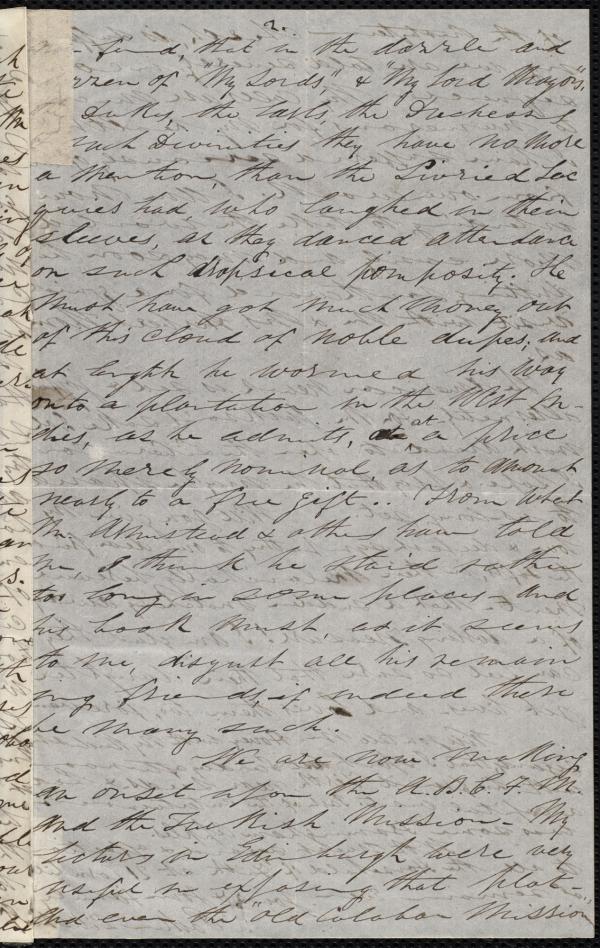 2.
find, that in the dazzle and
of "My Lords," & "My Lord Mayors,"
Dukes, the Earls, the Duchesses &
such Divinities they have no more
a mention, than the Livried Lac
quies had, who laughed in their
sleeves, as they danced attendance
on such dropsical pomposity. He
must have got much money out
of this cloud of noble dupes, and
at length he wormed his way
onto a plantation in the West In-
dies, as he admits, at a price
so merely nominal, as to amount
nearly to a free gift.. From what
Mr. Armistead & others have told
me, I think he staid rather
too long in some places - and
his book must, as it seems
to me, disgust all his remain
ing friends, if indeed there
be many such.
We are now making
an onset upon the A.B.C.F.M.
and the Turkish Mission - My
lectures in Edinburgh were very
useful in exposing that plot -
And even the "Old Calabar Mission"